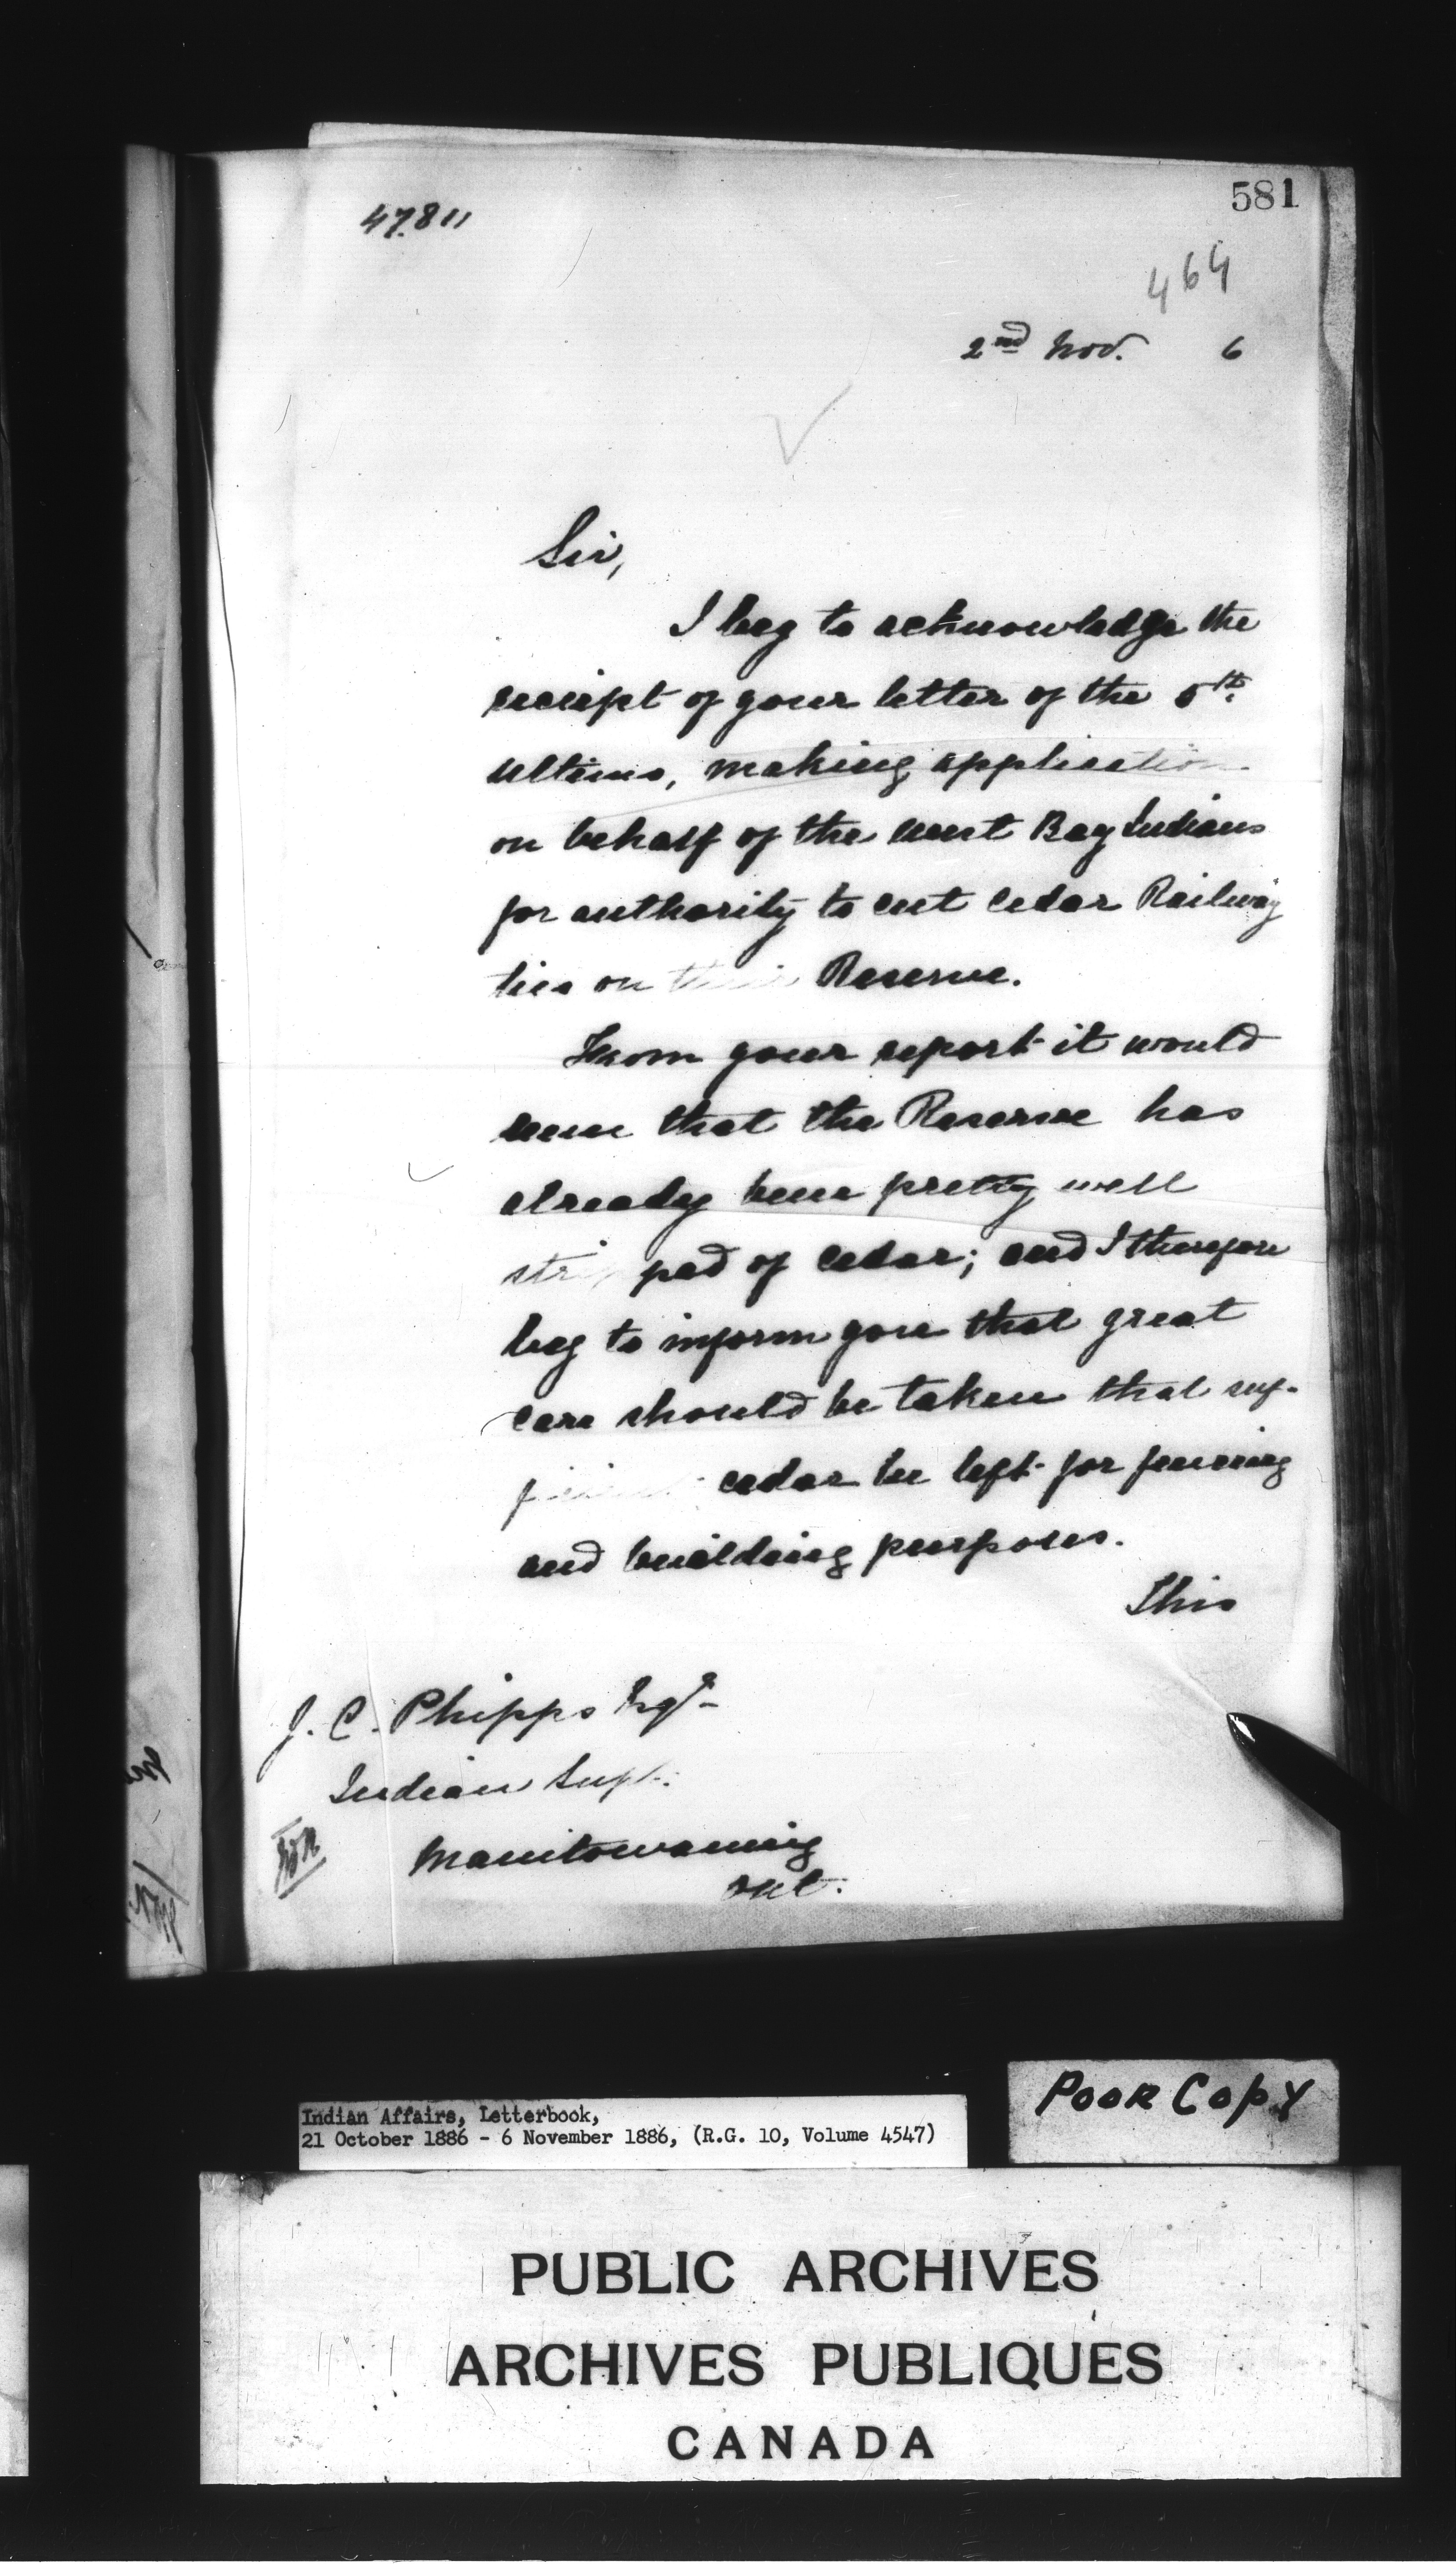 581
47.811
464
2nd Nov. 6
Sir,
I beg to acknowledge the
receipt of your letter of the 5th
ultimo, making application
on behalf of the West Bay Indians
for authority to cut cedar Railway
ties on their Reserve.
From your report it would
seem that the Reserve has
already been pretty well
stripped of cedar; and I therefore
beg to inform you that great
care should be taken that suf-
ficient cedar be left for fencing
and building purposes.
This
J. C. Phipps Esqr
Indian Supt.
Manitowaning
Ont.
POOR COPY
Indian Affairs, Letterbook,
21 October 1886 - 6 November 1886, (R.G. 10, Volume 4547)
PUBLIC ARCHIVES
ARCHIVES PUBLIQUES
CANADA